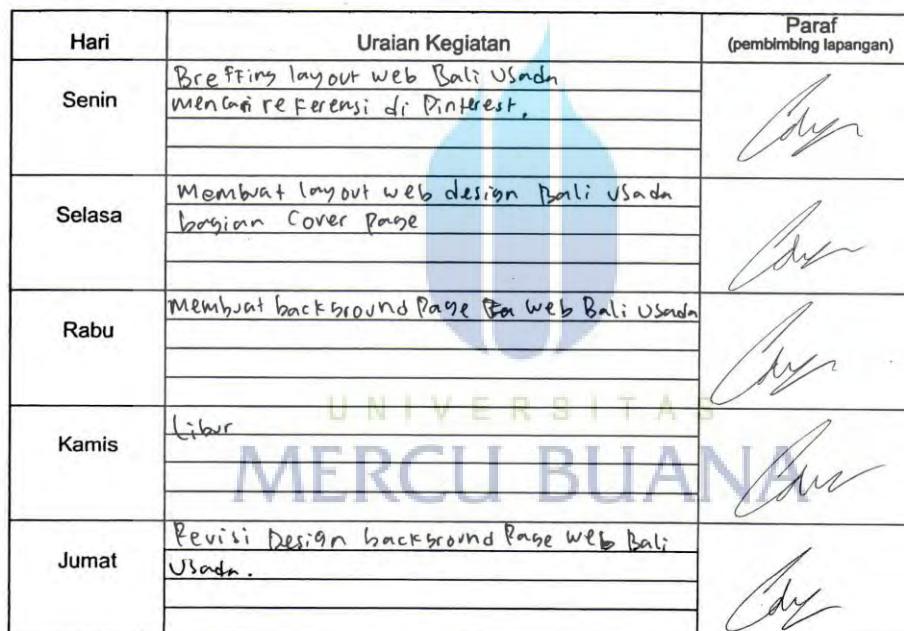 Hari
Uraian Kegiatan
Paraf
(pembimbing lapangan)
Senin
Breffing layout web Bali Usada
mencari referensi di Pinterest.
Selasa
Membuat layout web design Bali Usada
bagian Cover Page
Rabu
Membuat background Page web Bali Usada
Kamis
Libur
Jumat
Revisi Design background Page web Bali
Usada.
UNIVERSITAS
MERCU BUANA